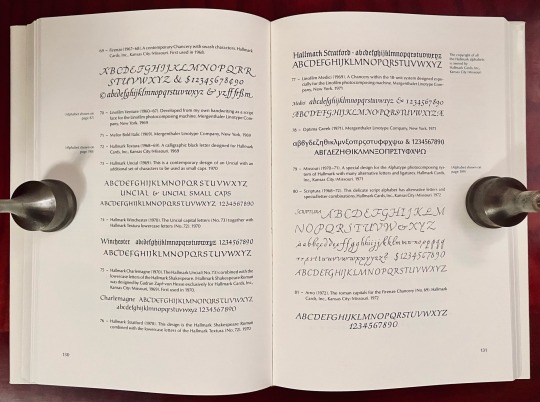 69 – Firenze (1967–68). A contemporary Chancery with swash characters. Hallmark
Cards, Inc., Kansas City-Missouri. First used in 1968.
ABCDEFGHIJKLMNOPQRR
STUVWXYZ & $1234567890
© abcdefghijklmnopqrstuvwxyz
(Alphabet shown on
page 47)
70 – Linofilm Venture (1960–67). Developed from my own handwriting as a script
face for the Linofilm photocomposing machine. Mergenthaler Linotype Com-
pany, New York. 1969
71 – Melior Bold Italic (1969). Mergenthaler Linotype Company, New York. 1969
(Alphabet shown on
72 – Hallmark Textura (1968–69). A calligraphic black letter designed for Hallmark
Cards, Inc., Kansas City-Missouri. 1969
73 – Hallmark Uncial (1969). This is a contemporary design of an Uncial with an
additional set of characters to be used as small caps. 1970
ABCDEFGHIJKLMNOPQRSTUVWXYZ
UNCIAL & UNCIAL SMALL CAPS
ABCDEFGHIJKLMNOPQRSTUVWXYZ 1234567890
74 – Hallmark Winchester (1970). The Uncial capital letters (No. 73) together with
Textura lowercase letters (No. 72). 1970
Winchester abcdefghijklmnopqrstuvwxyz 1234567890
ABCDEFGHIJKLMNOPQRSTUVWXYZ
75 – Hallmark Charlemagne (1970). The Hallmark Uncial (No. 73) combined with the
lowercase letters of the Hallmark Shakespeare. (Hallmark Shakespeare Roman
was designed by Gudrun Zapf-von Hesse exclusively for Hallmark Cards, Inc.,
Kansas City-Missouri). First used in 1970.
Charlemagne ABCDEFGHIJKLMNOPQRSTUVWXYZ
abcdefghijklmnopqrstuvwxyz 1234567890
76 – Hallmark Stratford (1970). The design is the Hallmark Shakespeare Roman
combined with the lowercase letters of the Hallmark Textura (No. 72). 1970
130
Hallmark Stratford · abcdefghijklmnopqrstuvwxyz
ABCDEFGHIJKLMNOPQRSTUVWXYZ 1234567890
The copyright of all
the Hallmark alphabets
is owned by
Hallmark Cards, Inc.,
Kansas City-Missouri.
77 – Linofilm Medici (1969). A Chancery within the 18-unit system designed espe-
cially for the Linofilm photocomposing machine. Mergenthaler Linotype Com-
pany, New York. 1971
Medici abcdefghijklmnopqrstuvwxyz & 1234567890
ABCDEFGHIJKLMNOPQRSTUVWXYZ
78 – Optima Greek (1971). Mergenthaler Linotype Company, New York. 1971
αβγδεζηθικλμνξοπρςστυφχψω & 1234567890
ΑΒΓΔΕΖΗΘΙΚΛΜΝΞΟΠΡΣΤΥΦΧΨΩ
79 – Missouri (1970–71). A special design for the Alphatype photocomposing sys-
tem of Hallmark with many alternative letters and ligatures. Hallmark Cards,
Inc., Kansas City-Missouri. 1971
(Alphabet shown on
80 – Scriptura (1968–72). This delicate script alphabet has alternative letters and
special letter combinations. Hallmark Cards, Inc., Kansas City-Missouri. 1972
SCRIPTURA
ABCDEFGHIJKLMNOPQRSTUVWXYZ
81 – Arno (1972). The roman capitals for the Firenze Chancery (No. 69). Hallmark
Cards, Inc., Kansas City-Missouri. 1972
ABCDEFGHIJKLMNOPQRSTUVWXYZ
1234567890
131